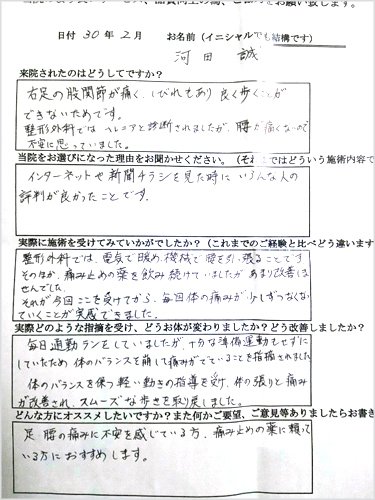 当院のよりよいサービス、品質向上の為、ご協力をお願い致します。
日付 30年2月 お名前(イニシャルでも結構です)
河田 誠
来院されたのはどうしてですか?
右足の股関節が痛く、しびれもあり良く歩くことが
できないためです。
整形外科ではヘルニアと診断されましたが、腰が痛くないので
不安に思っていました。
当院をお選びになった理由をお聞かせください。(それまではどういう施術内容で
インターネットや新聞チラシを見た時にいろんな人の
評判が良かったことです。
実際に施術を受けてみていかがでしたか?(これまでのご経験と比べどう違います
整形外科では、電気で暖め、機械で腰を引っ張ることです
そのほか、痛み止めの薬を飲み続けていましたがあまり改善しま
せんでした。
それが今回ここを受けてから、毎回体の痛みが少しずつなくな
っていくことが実感できました。
実際どのような指摘を受け、どうお体が変わりましたか?どう改善しましたか?
毎日通勤ランをしていましたが、十分な準備運動もせずに
していたため体のバランスを崩して痛みがでていることを指摘されました
体のバランスを保つ軽い動きの指導を受け、体の張りと痛み
が改善され、スムーズな歩きを取り戻しました。
どんな方にオススメしたいですか?また何かご要望、ご意見等ありましたらお書き
足腰の痛みに不安を感じている方、痛み止めの薬に頼って
いる方におすすめします。